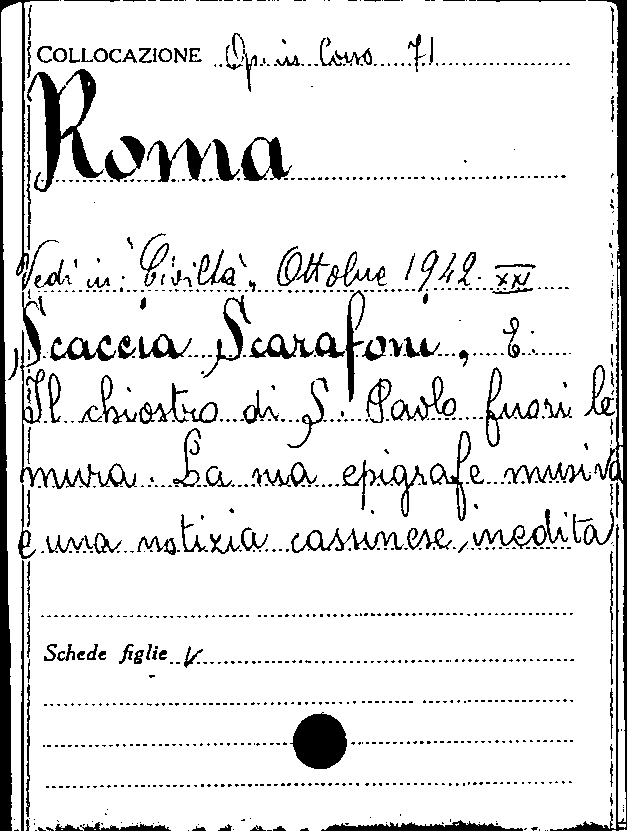 COLLOCAZIONE Op. in Corso 71
Roma
Vedi in: "Civiltà", Ottobre 1942. XXI
Scaccia Scarafoni, E.
Il chiostro di S. Paolo fuori le
mura. La sua epigrafe musiva
e una notizia cassinese inedita
Schede figlie V